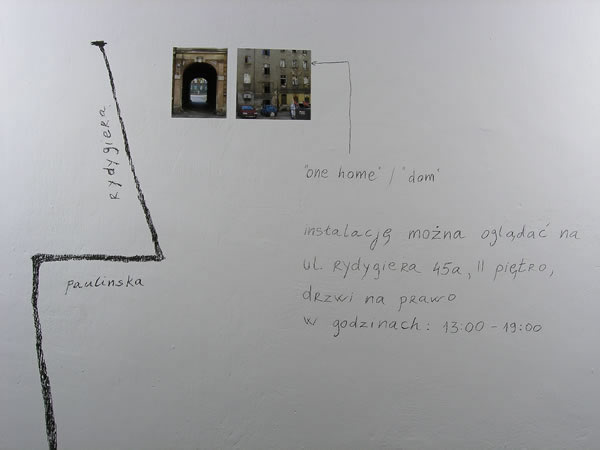 rydygiera
paulinska
"one home" / "dom"
instalację można oglądać na
ul. rydygiera 45a, II piętro,
drzwi na prawo
w godzinach: 13:00 - 19:00